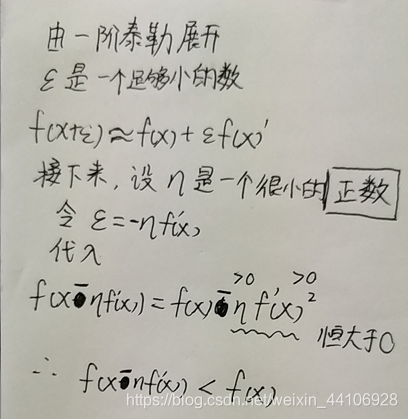 由一阶泰勒展开
ε是一个足够小的数
f(x+ε)≈f(x)+εf(x)'
接下来,设η是一个很小的正数
令 ε=-ηf'(x),
代入
>0 >0
f(x-ηf'(x))=f(x)-ηf'(x)²
恒大于0
∴ f(x-ηf'(x))<f(x)
https://blog.csdn.net/weixin_44106928